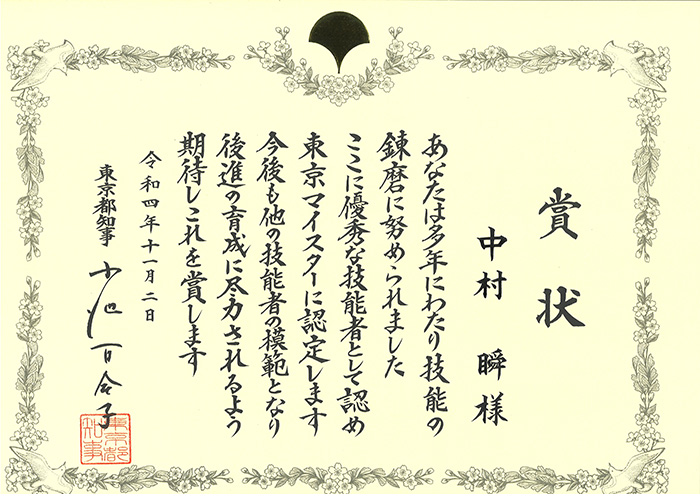 賞状
中村 瞬 様
あなたは多年にわたり技能の
錬磨に努められました
ここに優秀な技能者として認め
東京マイスターに認定します
今後も他の技能者の模範となり
後進の育成に尽力されるよう
期待しこれを賞します
令和四年十一月二日
東京都知事 小池百合子
東京都
知事